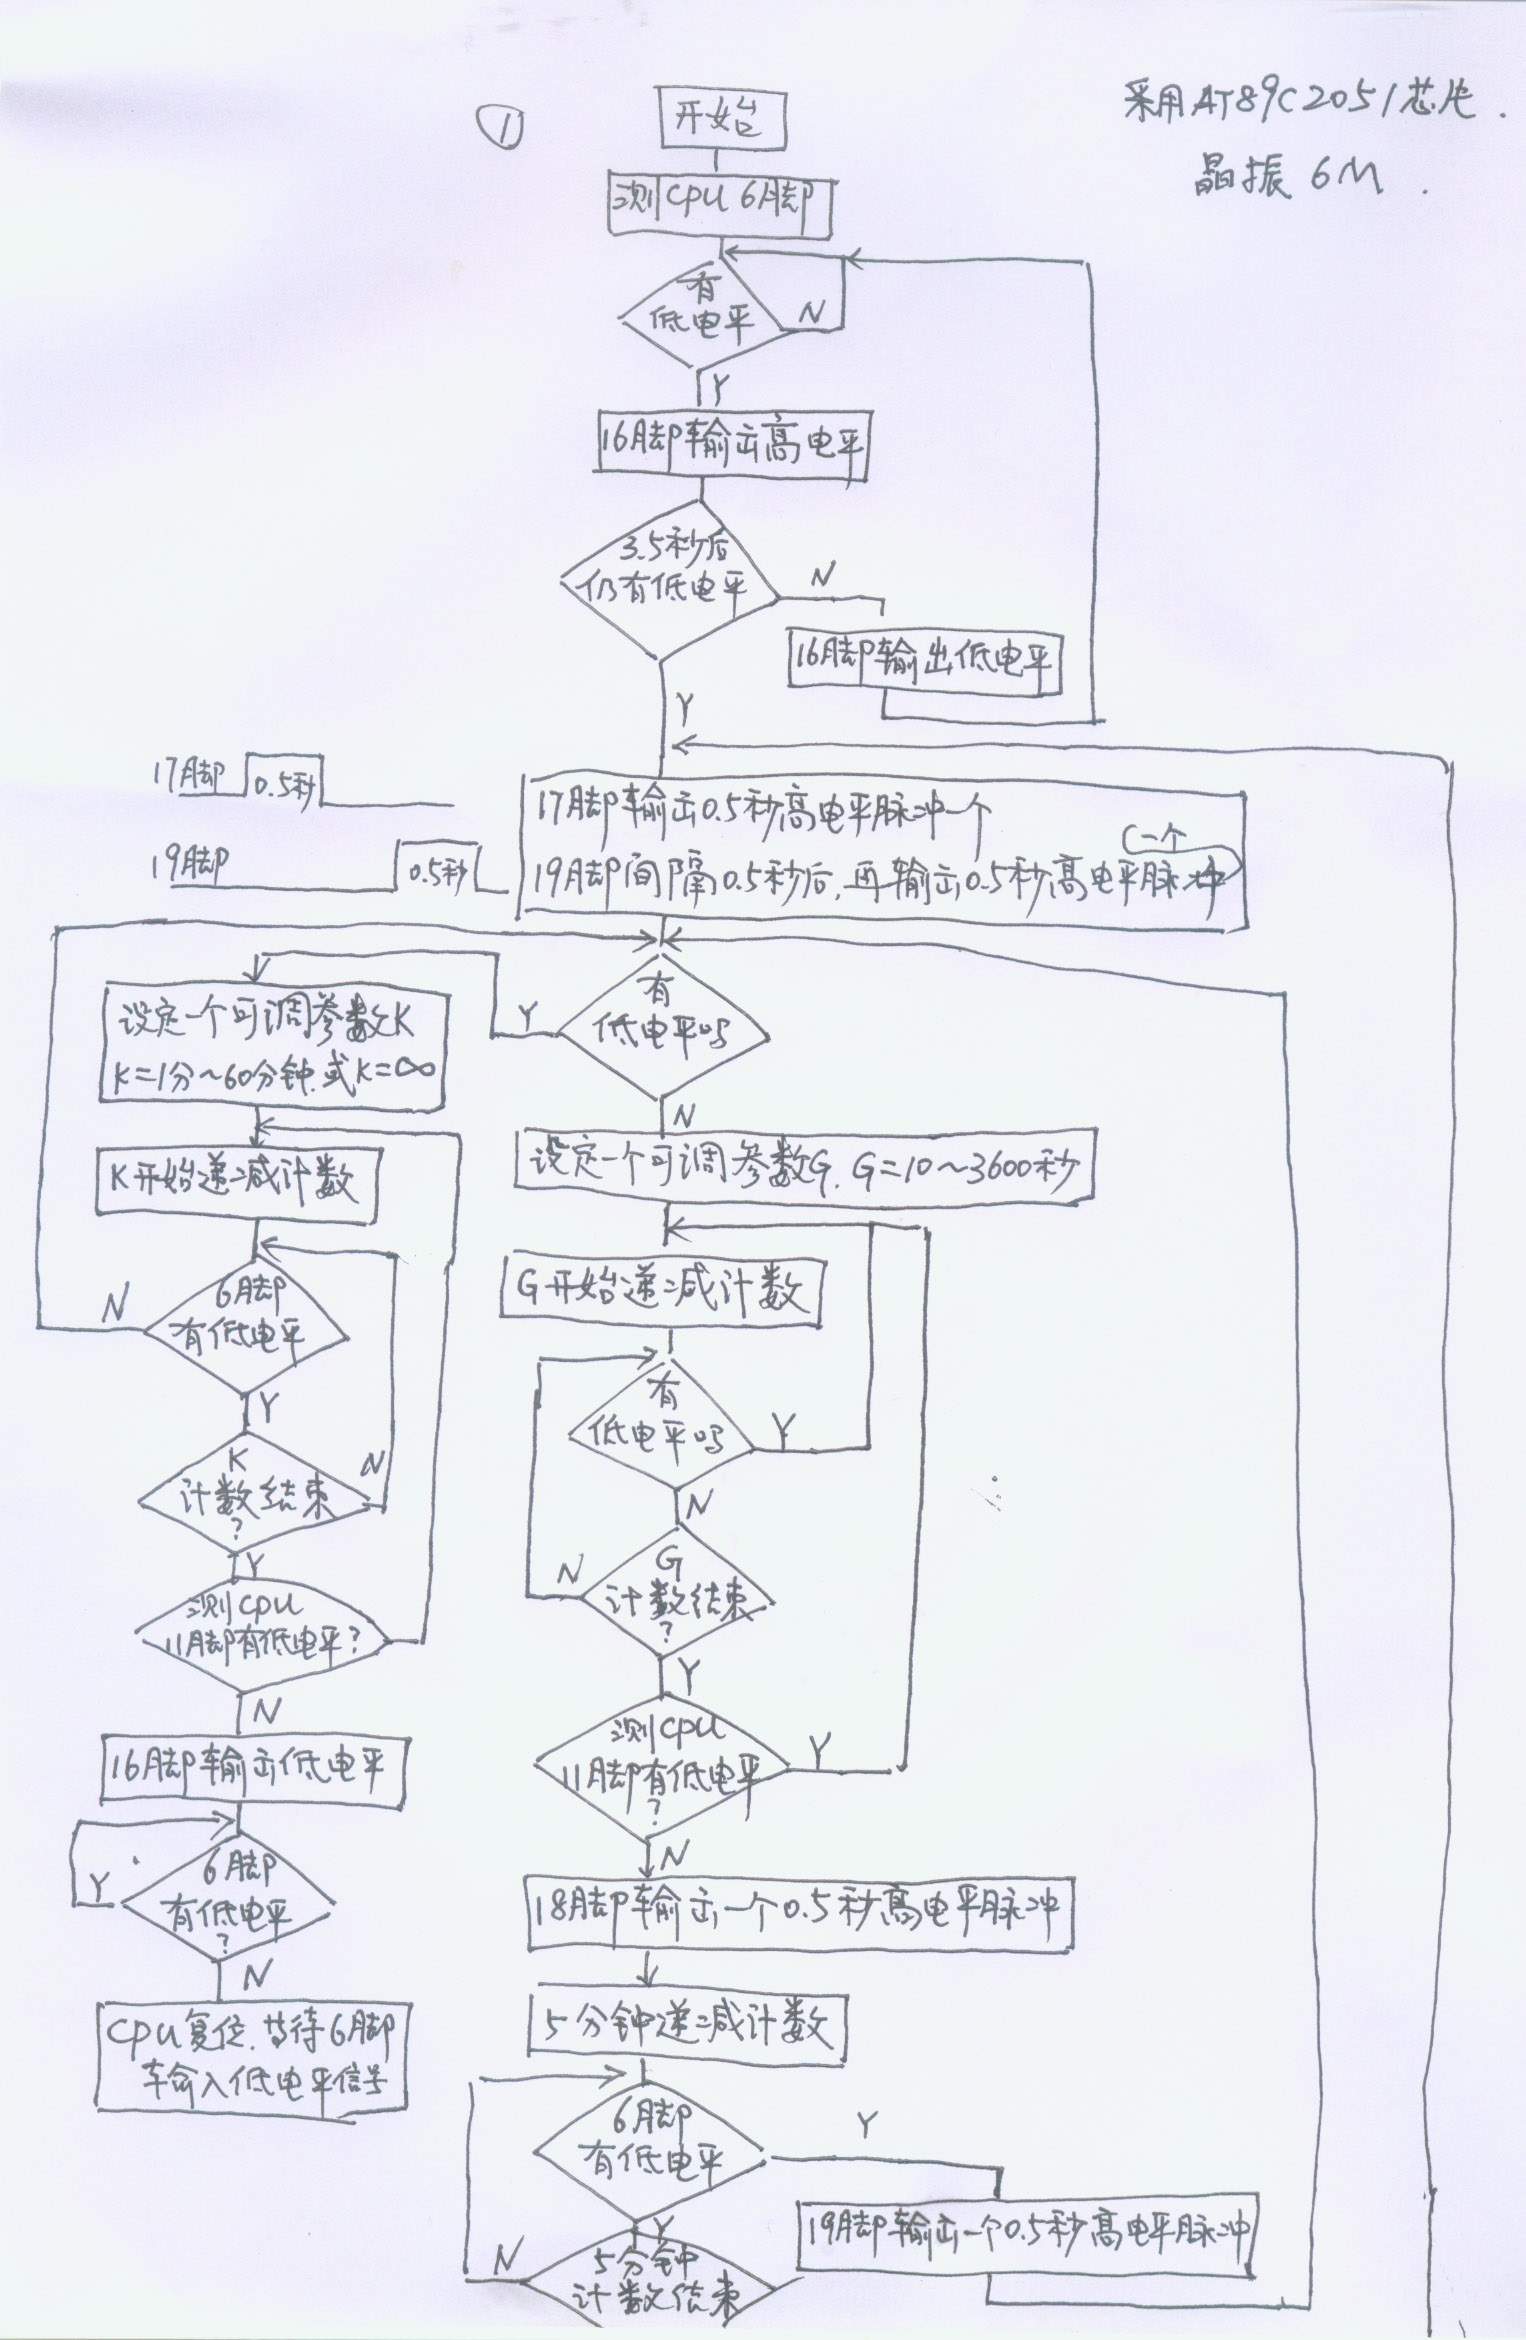 ①
采用AT89C2051芯片.
晶振 6M.
开始
测CPU 6脚
有
低电平
N
Y
16脚输出高电平
3.5秒后
仍有低电平
N
16脚输出低电平
Y
17脚 0.5秒
19脚 0.5秒
17脚输出0.5秒高电平脉冲一个
19脚间隔0.5秒后,再输出0.5秒高电平脉冲一个
有
低电平吗
Y
N
设定一个可调参数K
K=1分~60分钟.或K=∞
K开始递减计数
6脚
有低电平
N
Y
K
计数结束
?
N
Y
测CPU
11脚有低电平?
N
16脚输出低电平
6脚
有低电平
?
Y
N
CPU复位.等待6脚
输入低电平信号
设定一个可调参数G.G=10~3600秒
G开始递减计数
有
低电平吗
Y
N
G
计数结束
?
N
Y
测CPU
11脚有低电平
?
Y
N
18脚输出一个0.5秒高电平脉冲
5分钟递减计数
6脚
有低电平
Y
19脚输出一个0.5秒高电平脉冲
Y
5分钟
计数结束
N